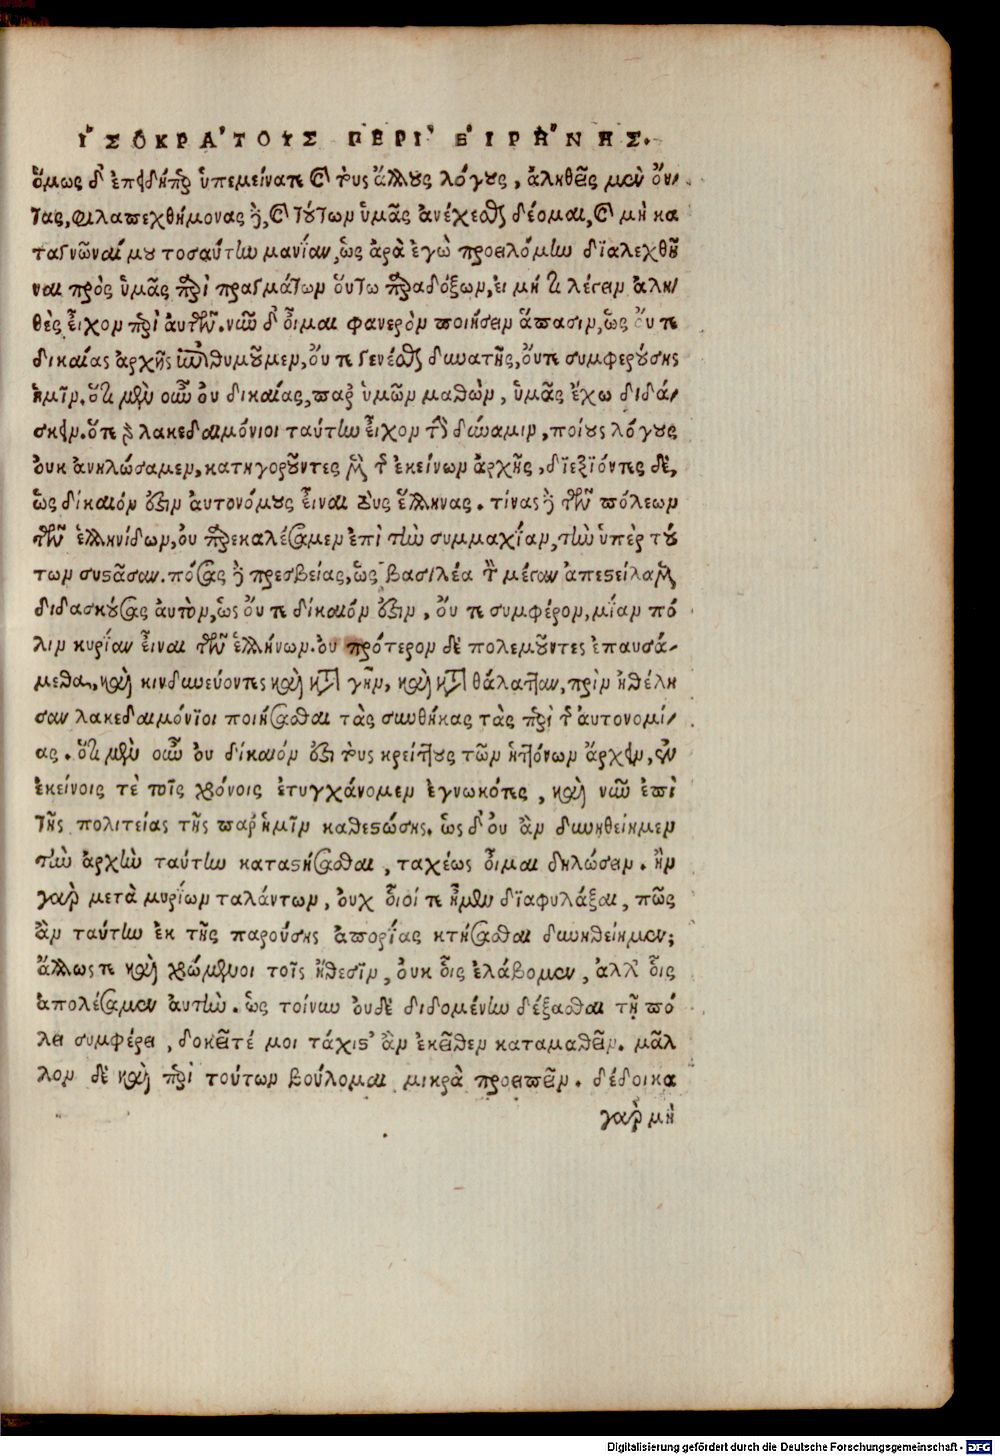 ἸΣΟΚΡΆΤΟΥΣ ΠΕΡῚ ΕἸΡΉΝΗΣ.
ὅμως δ' ἐπειδήπερ ὑπεμείνατε καὶ τοὺς ἄλλους λόγους, ἀληθεῖς μὲν ὄν/
τας, φιλαπεχθήμονας δὲ, καὶ τούτων ὑμᾶς ἀνέχεσθαι δέομαι, καὶ μὴ κα
ταγνῶναί μου τοσαύτην μανίαν, ὡς ἀρὰ ἐγὼ προειλόμην διαλεχθῆ
ναι πρὸς ὑμᾶς περὶ πραγμάτων οὕτω παραδόξων, εἰ μή τι λέγειν ἀλη/
θὲς εἶχον περὶ αὐτῶν. νῦν δ' οἶμαι φανερὸν ποιήσειν ἅπασιν, ὡς οὔ τε
δικαίας ἀρχῆς ἐπιθυμοῦμεν, οὔ τε γενέσθαι δυνατῆς, οὔτε συμφερούσης
ἡμῖν. ὅτι μὲν οὖν οὐ δικαίας, παρ' ὑμῶν μαθὼν, ὑμᾶς ἔχω διδά/
σκειν. ὅτε γὰρ λακεδαιμόνιοι ταύτην εἶχον τὴν δύναμιν, ποίους λόγους
οὐκ ἀνηλώσαμεν, κατηγοροῦντες μὲν τῆς ἐκείνων ἀρχῆς, διεξϊόντες δὲ,
ὡς δίκαιόν ἐστιν αὐτονόμους εἶναι τοὺς ἕλληνας. τίνας δὲ τῶν πόλεων
τῶν ἑλληνίδων, οὐ παρεκαλέσαμεν ἐπὶ τὴν συμμαχίαν, τὴν ὑπὲρ τού
των συστᾶσαν. πόσας δὲ πρεσβείας, ὡς βασιλέα τὸν μέγαν ἀπεστείλαμεν
διδασκούσας αὐτὸν, ὡς οὔ τε δίκαιόν ἐστιν, οὔ τε συμφέρον, μίαν πό
λιν κυρίαν εἶναι τῶν ἑλλήνων. οὐ πρότερον δὲ πολεμοῦντες ἐπαυσά/
μεθα, καὶ κινδυνεύοντες καὶ κατὰ γῆν, καὶ κατὰ θάλατταν, πρὶν ἠθέλη
σαν λακεδαιμόνϊοι ποιήσασθαι τὰς συνθήκας τὰς περὶ τῆς αὐτονομί/
ας. ὅτι μὲν οὖν οὐ δίκαιόν ἐστι τοὺς κρείττους τῶν ἡττόνων ἄρχειν, ἐν
ἐκείνοις τὲ τοῖς χρόνοις ἐτυγχάνομεν ἐγνωκότες, καὶ νῦν ἐπὶ
τῆς πολιτείας τῆς παρ' ἡμῖν καθεστώσης. ὡς δ' οὐ ἂν δυνηθείημεν
τὴν ἀρχὴν ταύτην καταστήσασθαι, ταχέως οἶμαι δηλώσειν. ἣν
γὰρ μετὰ μυρίων ταλάντων, οὐχ οἷοί τε ἦμεν διαφυλάξαι, πῶς
ἂν ταύτην ἐκ τῆς παρούσης ἀπορίας κτήσασθαι δυνηθείημεν;
ἄλλως τε καὶ χρώμενοι τοῖς ἤθεσϊν, οὐκ οἷς ἐλάβομεν, ἀλλ' οἷς
ἀπολέσαμεν αὐτὴν. ὡς τοίνυν οὐδὲ διδομένην δέξασθαι τῇ πό
λει συμφέρει, δοκεῖτέ μοι τάχιστ' ἂν ἐκεῖθεν καταμαθεῖν. μᾶλ
λον δὲ καὶ περὶ τούτων βούλομαι μικρὰ προειπεῖν. δέδοικα
γὰρ μὴ
Digitalisierung gefördert durch die Deutsche Forschungsgemeinschaft - DFG